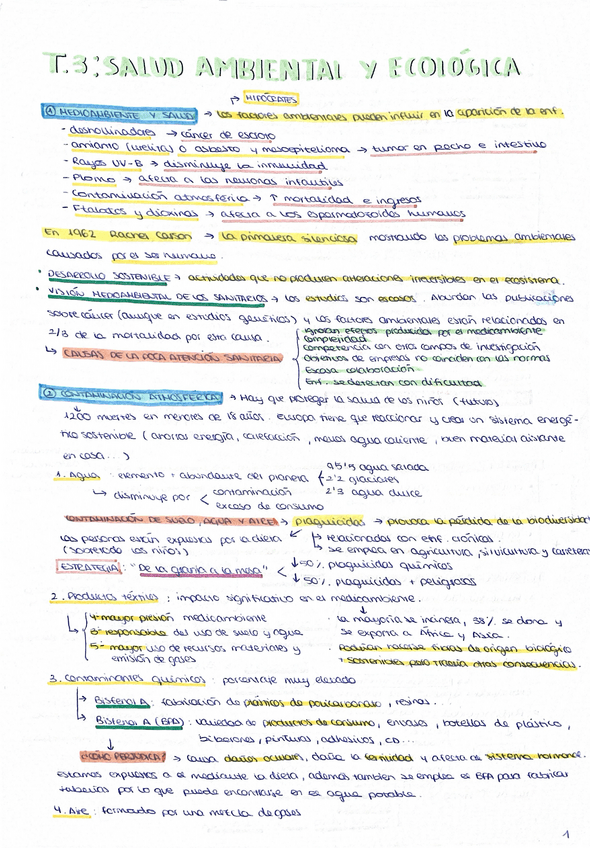 T.3: SALUD AMBIENTAL Y ECOLÓGICA
→ HIPÓCRATES
① MEDIOAMBIENTE Y SALUD → los factores ambientales pueden influir en la aparición de la enf.
- deshollinadores → cáncer de escroto
- amianto (uralita) o asbesto y mesoepitelioma → tumor en pecho e intestino
- Rayos UV-B → disminuye la inmunidad
- Plomo → afecta a las neuronas infantiles
- Contaminación atmosférica → ↑ mortalidad e ingresos
- Ftalatos y dioxinas → afecta a los espermatozoides humanos
En 1962 Rachel Carson → la primavera silenciosa mostrando los problemas ambientales
causados por el ser humano.
• DESARROLLO SOSTENIBLE → actividades que no producen alteraciones irreversibles en el ecosistema.
• VISIÓN MEDIOAMBIENTAL DE LOS SANITARIOS → los estudios son escasos. Abordan las publicaciones
sobre cáncer (aunque en estudios genéticos) y los factores ambientales están relacionados en
2/3 de la mortalidad por esta causa.
↳ CAUSAS DE LA POCA ATENCIÓN SANITARIA
Ignoran efectos producidos por el medioambiente
Complejidad
Competencia con otros campos de investigación
Objetivos de empresas no coinciden con las normas
Escasa colaboración
Enf. se detectan con dificultad
② CONTAMINACIÓN ATMOSFÉRICA → Hay que proteger la salud de los niños (futuro)
1200 muertes en menores de 18 años. Europa tiene que reaccionar y crear un sistema energé-
tico sostenible (ahorros energía, calefacción, menos agua caliente, buen material aislante
en casa...)
1. Agua: elemento + abundante del planeta
95'5 agua salada
2'2 glaciares
2'3 agua dulce
↳ disminuye por < contaminación
exceso de consumo
CONTAMINACIÓN DE SUELO, AGUA Y AIRE → plaguicidas → provoca la pérdida de la biodiversidad
Las personas están expuestas por la dieta
(sobretodo los niños)
→ relacionados con enf. crónicas.
→ se emplea en agricultura, silvicultura y carreteras
ESTRATEGIA: "De la granja a la mesa" < ↓50% plaguicidas químicos
↓50% plaguicidas + peligrosos
2. Productos téxtiles: impacto significativo en el medioambiente.
4ª mayor presión medioambiente
3º responsable del uso de suelo y agua
5º mayor uso de recursos materiales y
emisión de gases
· La mayoría se incinera, 38% se dona y
se exporta a África y Asia.
· Podrían hacerse fibras de origen biológico
+ sostenibles pero traería otras consecuencias.
3. Contaminantes químicos: porcentaje muy elevado
→ Bisfenol A: fabricación de plásticos de policarbonato, resinas...
→ Bisfenol A (BPA): variedad de productos de consumo, envases, botellas de plástico,
biberones, pinturas, adhesivos, CD...
¿CÓMO PERJUDICA? → causa daños oculares, daña la fertilidad y afecta al sistema hormonal.
Estamos expuestos a él mediante la dieta, además también se emplea el BPA para fabricar
tuberías por lo que puede encontrarse en el agua potable.
4. Aire: formado por una mezcla de gases
1